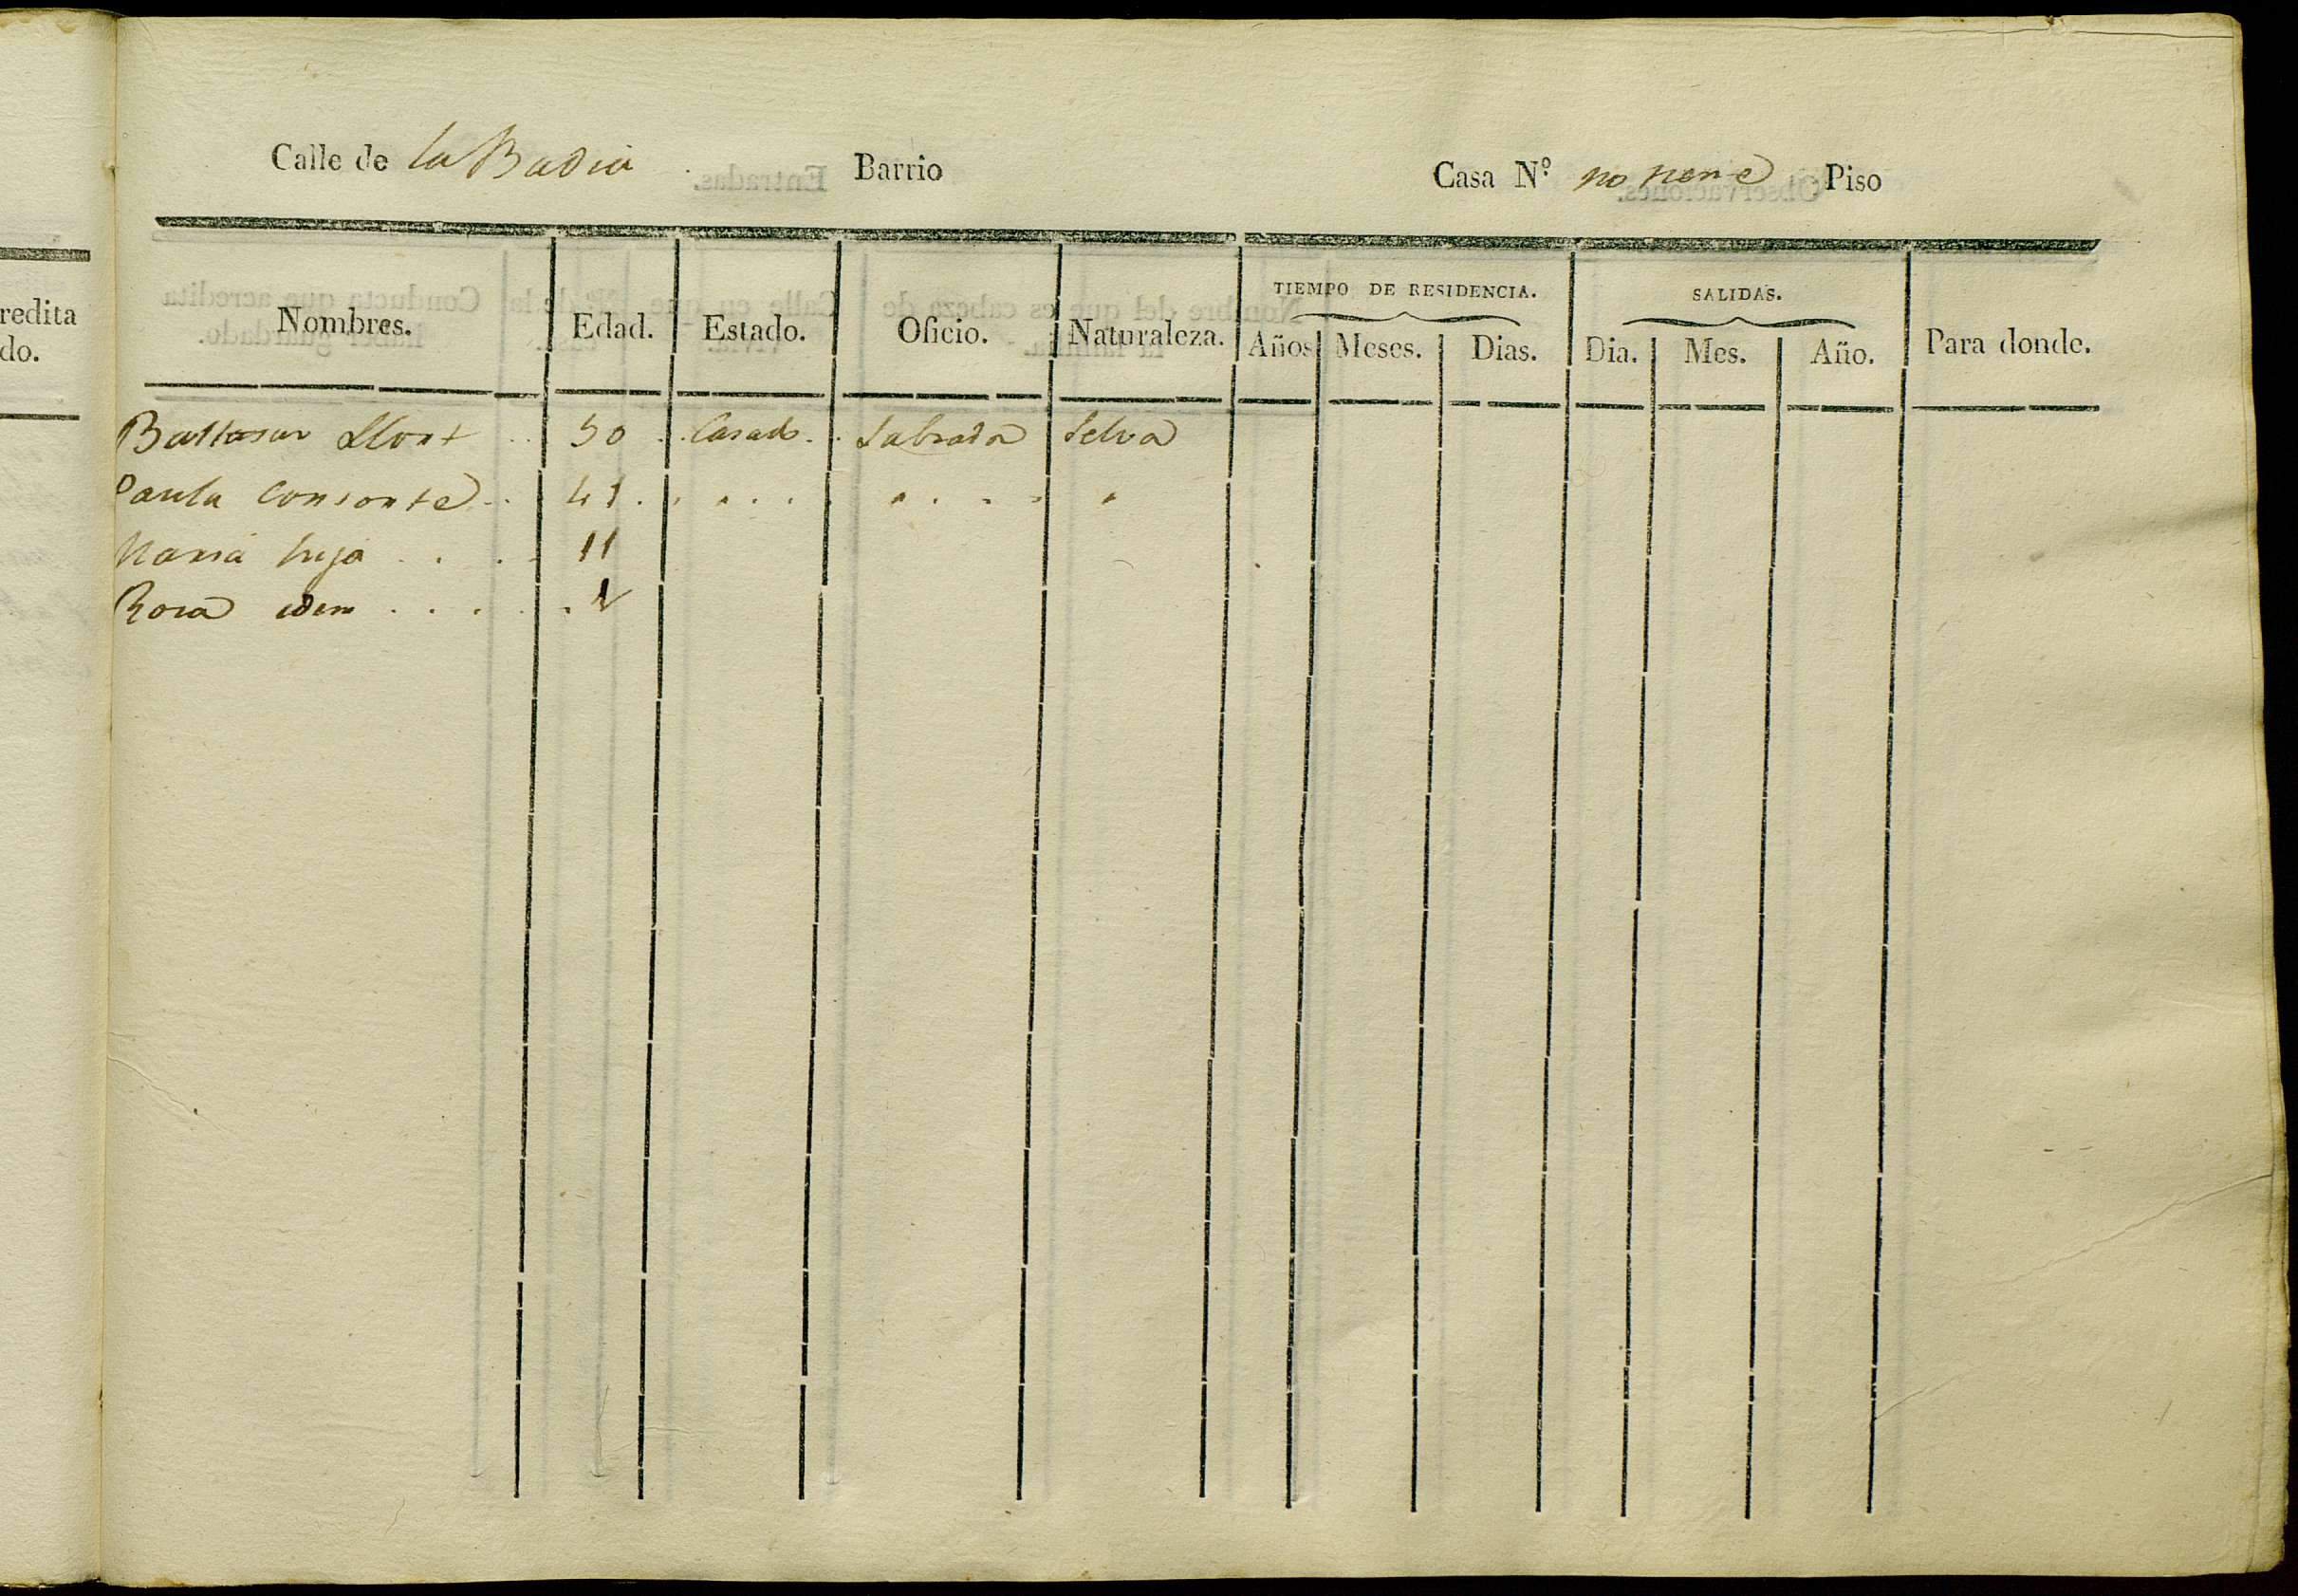 redita
do.
Calle de la Badia Barrio Casa N.º no tiene Piso
TIEMPO DE RESIDENCIA. SALIDAS.
Nombres. Edad. Estado. Oficio. Naturaleza. Años Meses. Dias. Dia. Mes. Año. Para donde.
Baltasar Llort 50 Casado Labrador Selva
Paula Consorte 41
Maria hija 11
Rosa idem